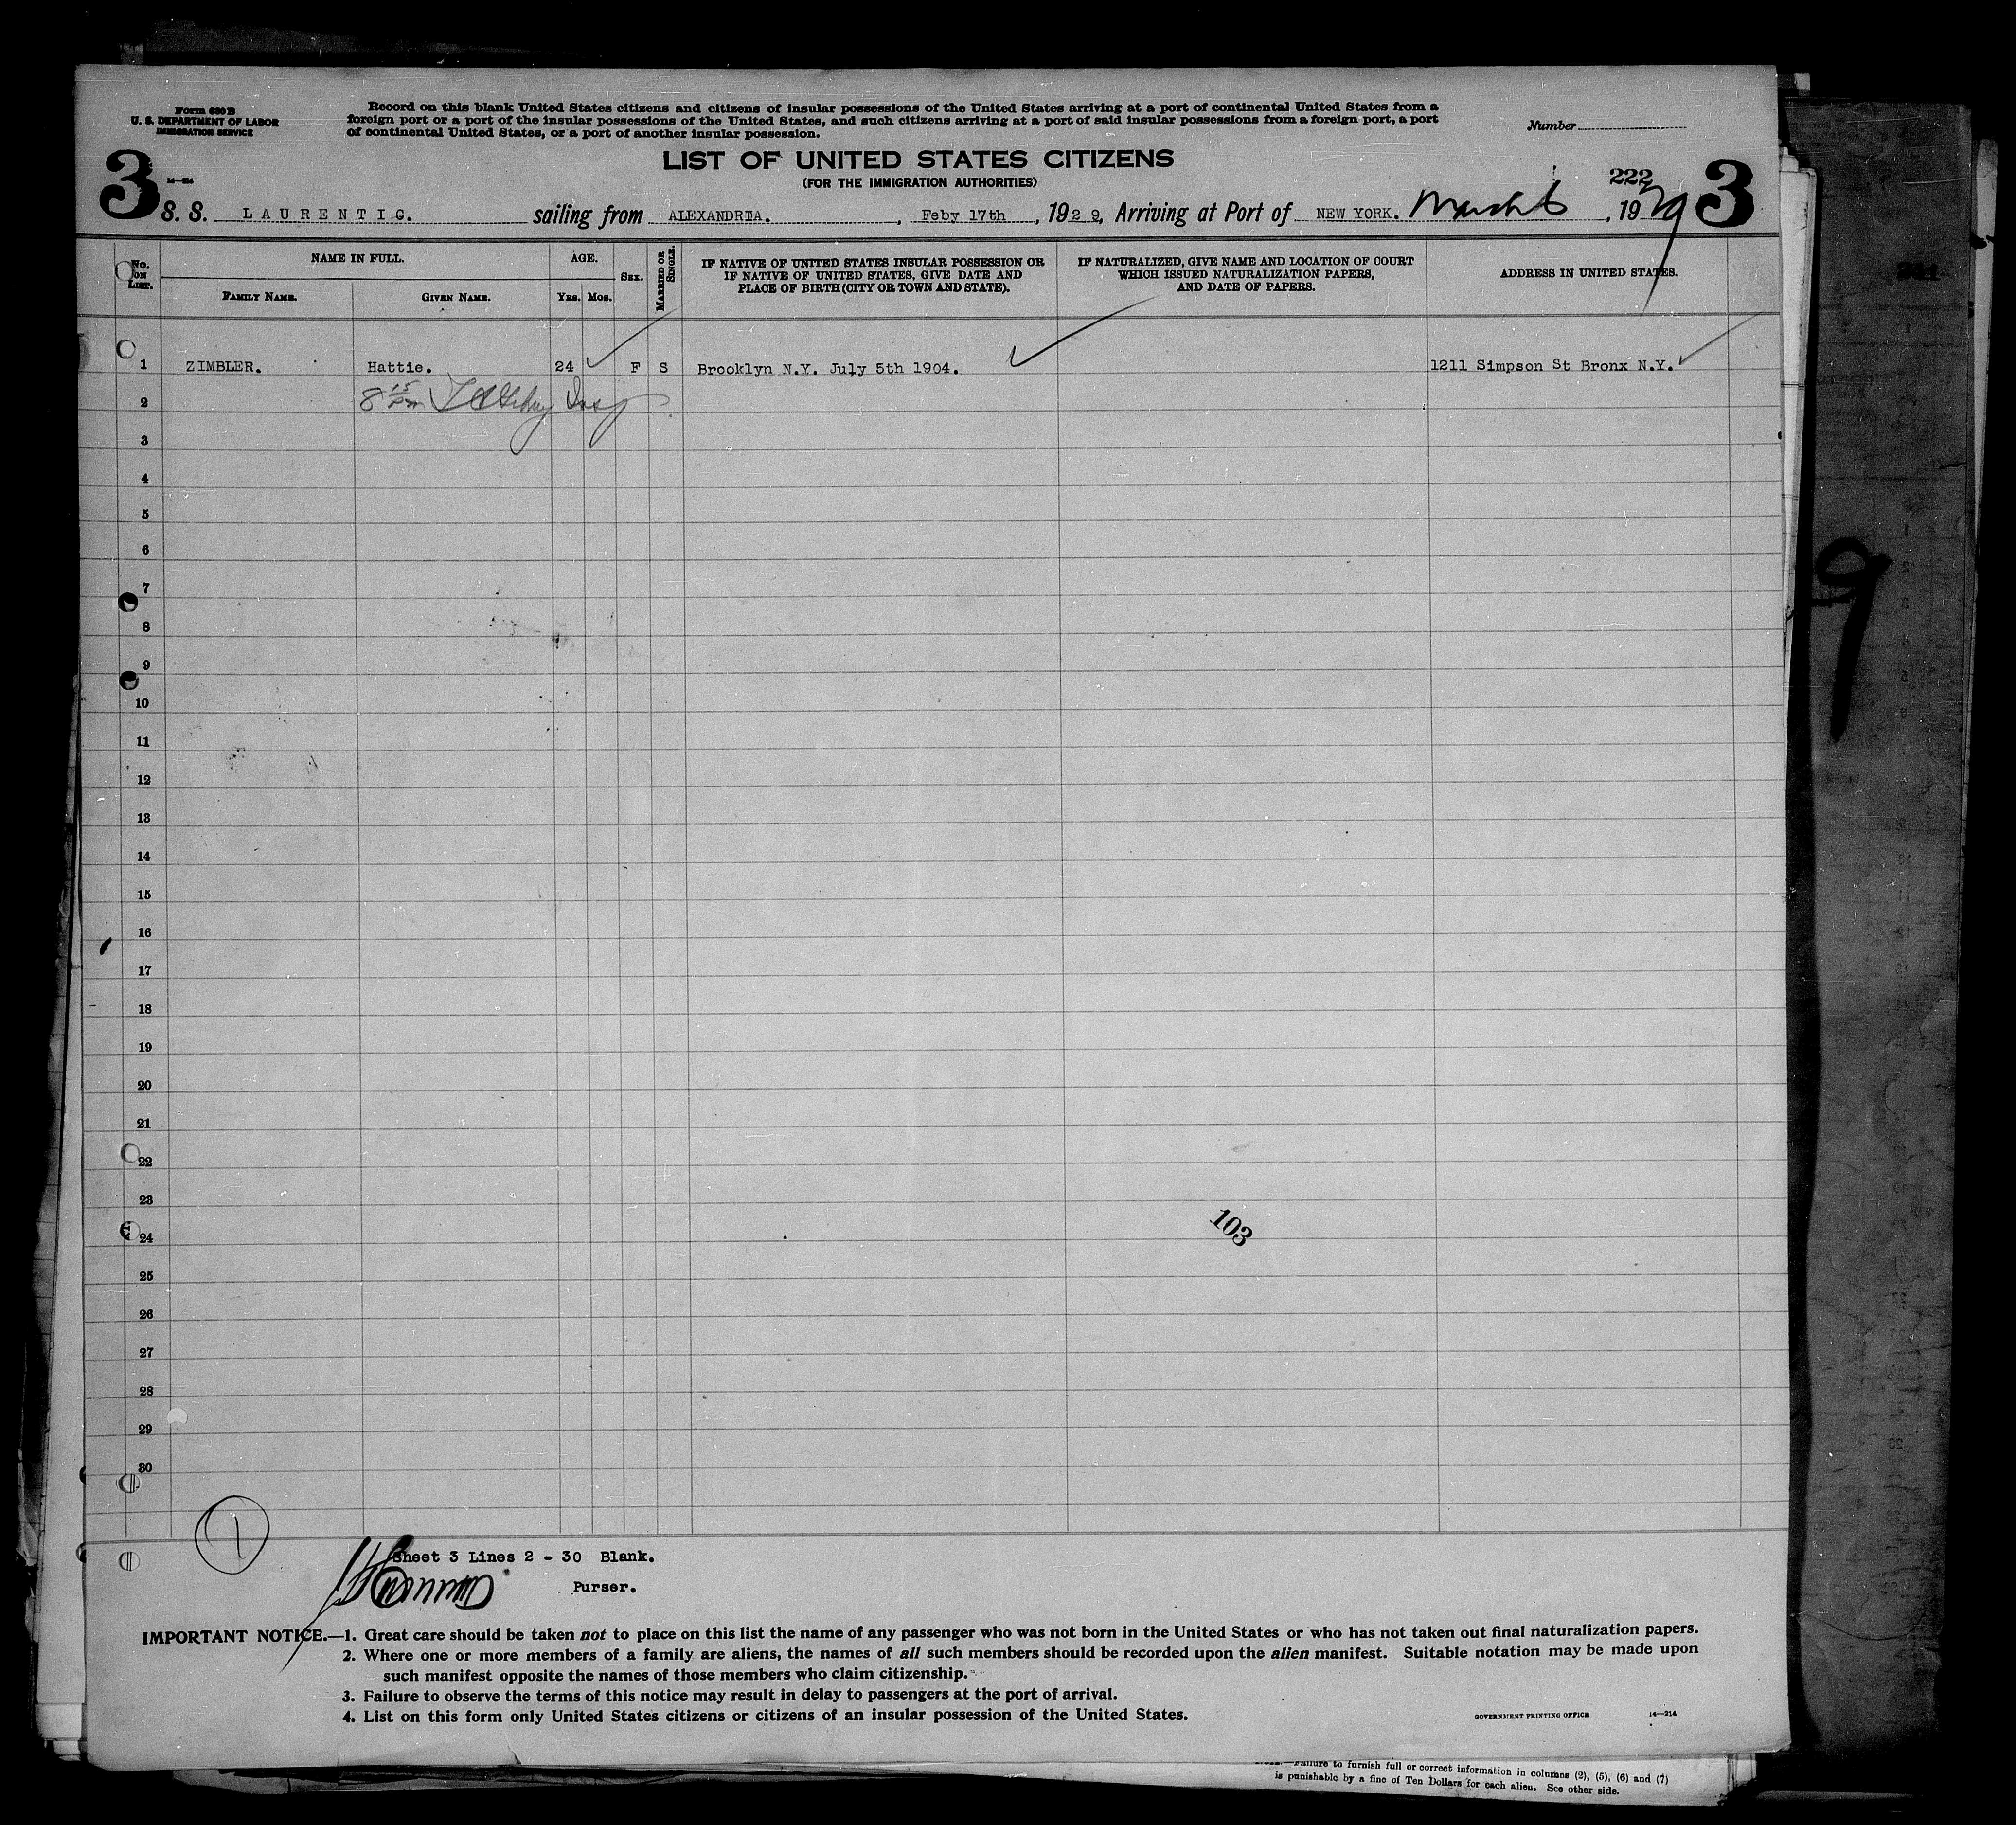 Form 630 B
U. S. DEPARTMENT OF LABOR
IMMIGRATION SERVICE
Record on this blank United States citizens and citizens of insular possessions of the United States arriving at a port of continental United States from a
foreign port or a port of the insular possessions of the United States, and such citizens arriving at a port of said insular possessions from a foreign port, a port
of continental United States, or a port of another insular possession.
Number
LIST OF UNITED STATES CITIZENS
(FOR THE IMMIGRATION AUTHORITIES)
3
14—214
222
3
S. S. LAURENTIC. sailing from ALEXANDRIA. , Feby 17th , 1929, Arriving at Port of NEW YORK. March 6 , 1929
No. ON LIST.
NAME IN FULL.
FAMILY NAME.
GIVEN NAME.
AGE.
YRS. MOS.
SEX.
MARRIED OR SINGLE.
IF NATIVE OF UNITED STATES INSULAR POSSESSION OR
IF NATIVE OF UNITED STATES, GIVE DATE AND
PLACE OF BIRTH (CITY OR TOWN AND STATE).
IF NATURALIZED, GIVE NAME AND LOCATION OF COURT
WHICH ISSUED NATURALIZATION PAPERS,
AND DATE OF PAPERS.
ADDRESS IN UNITED STATES.
1 ZIMBLER. Hattie. 24 F S Brooklyn N.Y. July 5th 1904. 1211 Simpson St Bronx N.Y.
8 15 pm Insp
2
3
4
5
6
7
8
9
10
11
12
13
14
15
16
17
18
19
20
21
22
23
103
24
25
26
27
28
29
30
1
Sheet 3 Lines 2 - 30 Blank.
Purser.
IMPORTANT NOTICE.—1. Great care should be taken not to place on this list the name of any passenger who was not born in the United States or who has not taken out final naturalization papers.
2. Where one or more members of a family are aliens, the names of all such members should be recorded upon the alien manifest. Suitable notation may be made upon
such manifest opposite the names of those members who claim citizenship.
3. Failure to observe the terms of this notice may result in delay to passengers at the port of arrival.
4. List on this form only United States citizens or citizens of an insular possession of the United States.
GOVERNMENT PRINTING OFFICE 14—214
Failure to furnish full or correct information in columns (2), (5), (6) and (7)
is punishable by a fine of Ten Dollars for each alien. See other side.
9